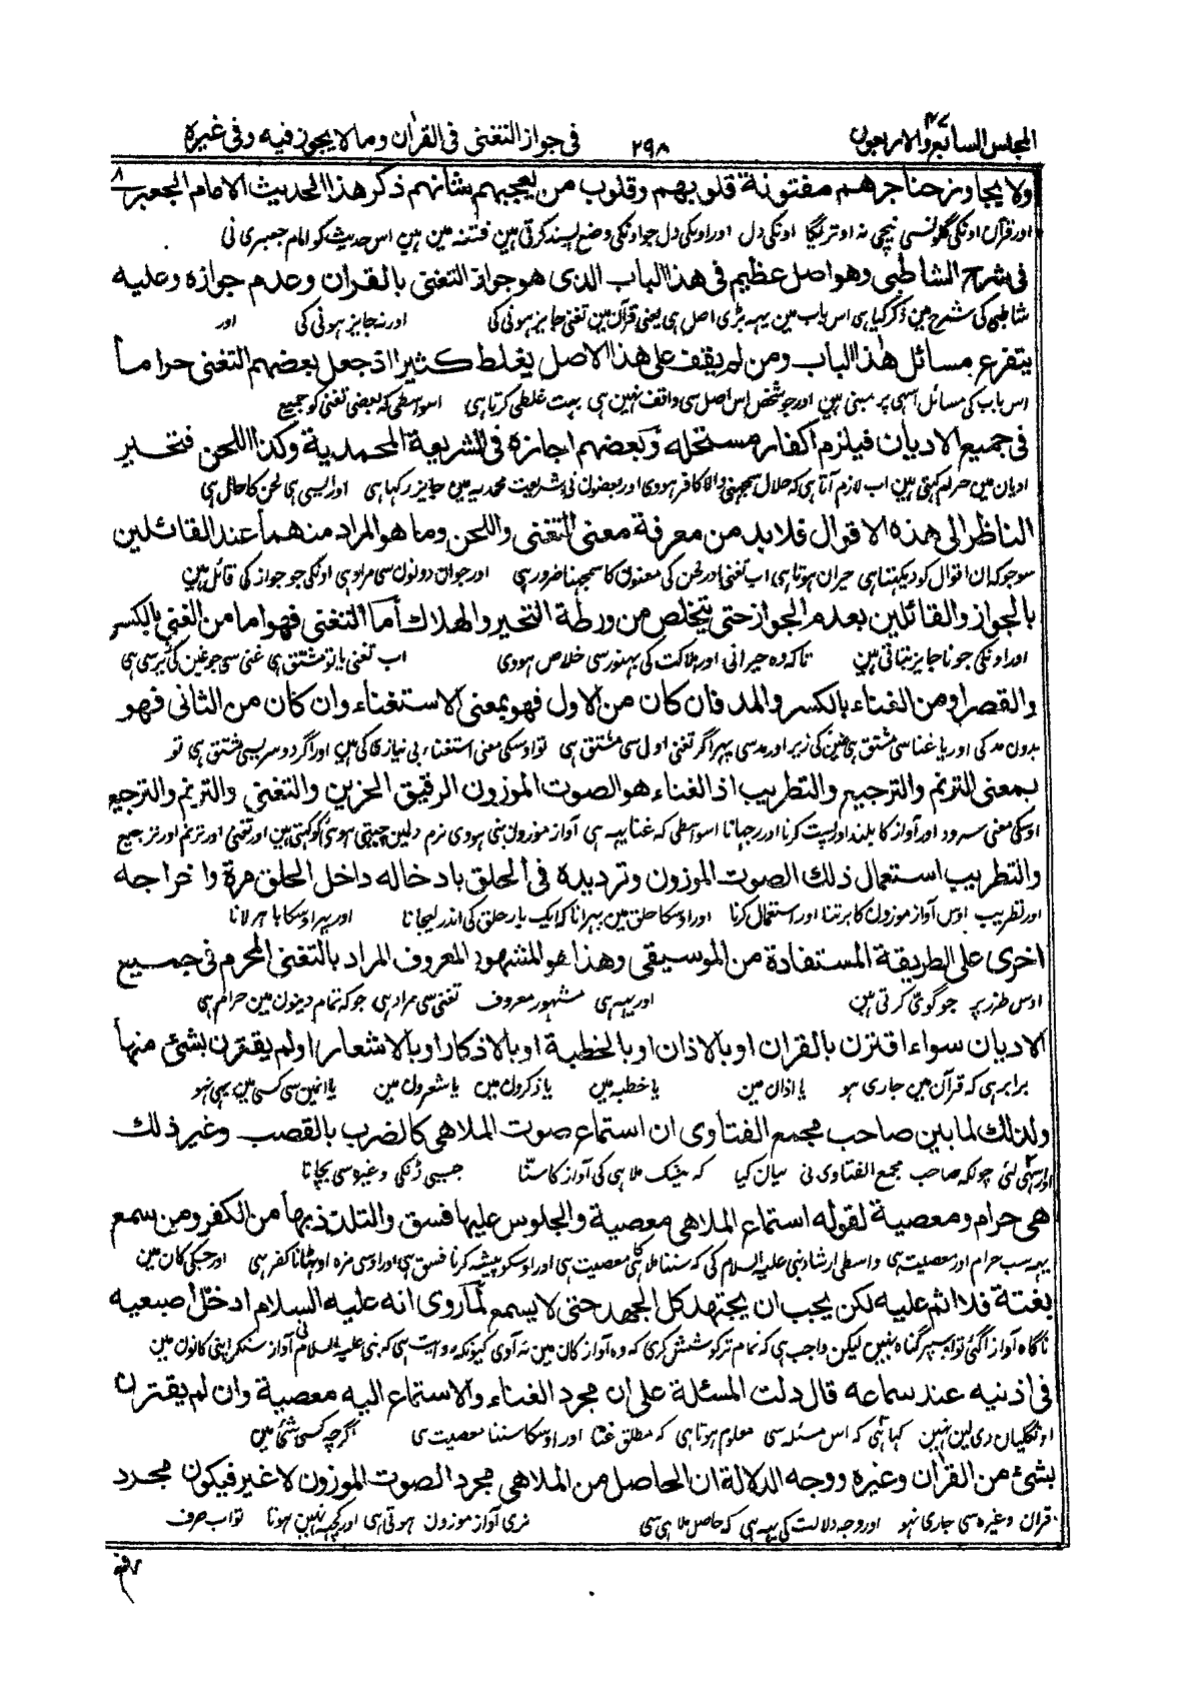 المجلس السابع والاربعون ۴۷ ۲۹۸ فی جواز التغنی فی القران وما لا یجوز فیه وفی غیره
ولا یجاوز حناجرهم مفتونة قلوبهم وقلوب من یعجبهم شانهم ذکر هذا الحدیث الامام الجعبری
اور قرآن اونکی گلونسی نیچی نہ اوتریگا اونکی دل اور اونکی دل جو اونکی وضع پسند کرتی ہین فتنہ مین ہین اس حدیث کو امام جعبری نی
فی شرح الشاطبی وهو اصل عظیم فی هذا الباب الذی هو جواز التغنی بالقران وعدم جوازه وعلیه
شاطبی کی شرح مین ذکر کیا ہی اس باب مین یہہ بڑی اصل ہی یعنی قرآن مین تغنی جایز ہونی کی اور نہ جایز ہونی کی اور
یتفرع مسائل هذا الباب ومن لم یقف علی هذا الاصل یغلط کثیرا اذ جعل بعضهم التغنی حراما
اس باب کی مسائل اسہی پر مبنی ہین اور جو شخص اس اصل سی واقف نہین ہی بہت غلطی کرتا ہی اسواسطی کہ بعضی تغنی کو جمیع
فی جمیع الادیان فیلزم اکفار مستحله وبعضهم اجازه فی الشریعة المحمدیة وکذا اللحن فتحیر
ادیان مین حرام کہتی ہین اب لازم آتا ہی کہ حلال سمجہنی والا کافر ہووی اور بعضون نی شریعت محمدیہ مین جایز رکہا ہی اور ایسی ہی لحن کا حال ہی
الناظر الی هذه الاقوال فلا بد من معرفة معنی التغنی واللحن وما هو المراد منهما عند القائلین
سو جو کہ ان اقوال کو دیکہتا ہی حیران ہوتا ہی اب تغنی اور لحن کی معنون کا سمجہنا ضرور ہی اور جو ان دونون سی مراد ہی اونکی جو جواز کی قائل ہین
بالجواز والقائلین بعدم الجواز حتی یتخلص من ورطة التحیر والهلاك أما التغنی فهو اما من الغنی بالکسر
اور اونکی جو ناجایز بتاتی ہین تاکہ وہ حیرانی اور ہلاکت کی بہنور سی خلاص ہووی اب تغنی یا تو مشتق ہی غنی سی جو غین کی زیر سی ہی
والقصر او من الغناء بالکسر والمد فان کان من الاول فهو بمعنی الاستغناء وان کان من الثانی فهو
بدون مد کی اور یا غنا سی مشتق ہی غین کی زیر اور مد سی پہر اگر تغنی اول سی مشتق ہی تو اوسکی معنی استغناء بی نیاز کی ہین اور اگر دوسری سی مشتق ہی تو
بمعنی الترنم والترجیع والتطریب اذ الغناء هو الصوت الموزون الرقیق الحزین والتغنی والترنم والترجیع
اوسکی معنی سرود اور آواز کا بلند اور پست کرنا اور رجہانا اسواسطی کہ غنا یہہ ہی آواز موزون بنی ہووی نرم دلمین چبہتی ہوئی کو کہتی ہین اور تغنی اور ترنم اور ترجیع
والتطریب استعمال ذلك الصوت الموزون وتردیده فی الحلق بادخاله داخل الحلق مرة واخراجه
اور تطریب اوس آواز موزون کا برتنا اور استعمال کرنا اور اوسکا حلق مین پہرانا کہ ایک بار حلق کی اندر لیجانا اور پہر اوسکا باہر لانا
اخری علی الطریقة المستفادة من الموسیقی وهذا هو المشهور المعروف المراد بالتغنی المحرم فی جمیع
اوس طرز پر جو گویی کرتی ہین اور یہہ ہی مشہور معروف تغنی سی مراد ہی جو کہ تمام دینون مین حرام ہی
الادیان سواء اقترن بالقران او بالاذان او بالخطبة او بالاذکار او بالاشعار او لم یقترن بشئ منها
برابر ہی کہ قرآن مین جاری ہو یا اذان مین یا خطبہ مین یا ذکرون مین یا شعرون مین یا انمین سی کسی مین بہی نہو
ولذلك لما بین صاحب مجمع الفتاوی ان استماع صوت الملاهی کالضرب بالقصب وغیر ذلك
اور اسہی لئی چونکہ صاحب مجمع الفتاوی نی بیان کیا کہ بیشک ملاہی کی آواز کا سننا جیسی ڈنکی وغیرہ سی بجانا
هی حرام ومعصیة لقوله استماع الملاهی معصیة والجلوس علیها فسق والتلذذ بها من الکفر ومن سمع
یہہ سب حرام اور معصیت ہی واسطی ارشاد نبی علیہ السلام کی کہ سننا ملاہی کا معصیت ہی اور اوسکو پیشہ کرنا فسق ہی اور اوسی مزہ اوٹہانا کفر ہی اور جسکی کان مین
بغتة فلا اثم علیه لکن یجب ان یجتهد کل الجهد حتی لا یسمع لما روی انه علیه السلام ادخل اصبعیه
ناگاہ آواز آگئی تو اسپر گناہ نہین لیکن واجب ہی کہ تمام تر کوشش کری کہ وہ آواز کان مین نہ آوی کیونکہ روایت ہی کہ نبی علیہ السلام نی آواز سنکر اپنی کانون مین
فی اذنیه عند سماعه قال دلت المسئلة علی ان مجرد الغناء والاستماع الیه معصیة وان لم یقترن
اونگلیان دی لین نہین کہا ہی کہ اس مسئلہ سی معلوم ہوتا ہی کہ مطلق غنا اور اوسکا سننا معصیت ہی اگرچہ کسی شئی مین
بشئ من القران وغیره ووجه الدلالة ان الحاصل من الملاهی مجرد الصوت الموزون لا غیر فیکون مجرد
قرآن وغیرہ سی جاری نہو اور وجہ دلالت کی یہہ ہی کہ حاصل ملاہی سی نری آواز موزون ہوتی ہی اور کچہہ نہین ہوتا تو اب صرف